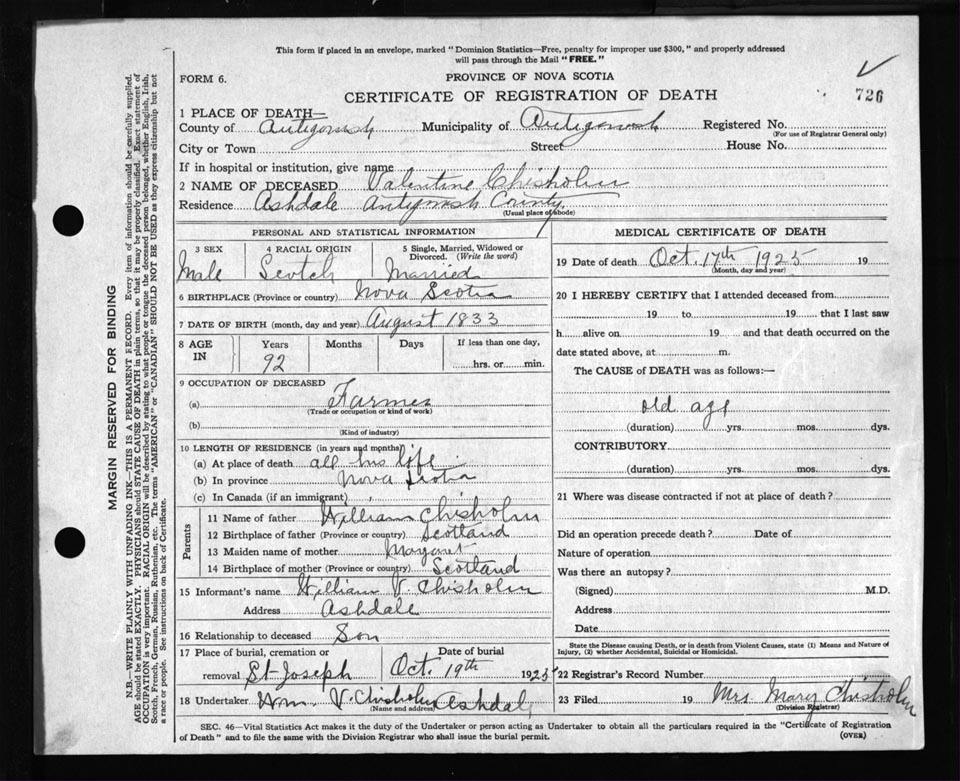 This form if placed in an envelope, marked "Dominion Statistics—Free, penalty for improper use $300," and properly addressed
will pass through the Mail "FREE."
FORM 6.
PROVINCE OF NOVA SCOTIA
726
CERTIFICATE OF REGISTRATION OF DEATH
1 PLACE OF DEATH—
County of Antigonish Municipality of Antigonish Registered No.
(For use of Registrar General only)
City or Town Street House No.
If in hospital or institution, give name
2 NAME OF DECEASED Valentine Chisholm
Residence Ashdale Antigonish County
(Usual place of abode)
PERSONAL AND STATISTICAL INFORMATION
3 SEX 4 RACIAL ORIGIN 5 Single, Married, Widowed or
Divorced. (Write the word)
Male Scotch Married
6 BIRTHPLACE (Province or country) Nova Scotia
7 DATE OF BIRTH (month, day and year) August 1833
8 AGE IN Years Months Days If less than one day,
92 hrs. or min.
9 OCCUPATION OF DECEASED
(a) Farmer
(Trade or occupation or kind of work)
(b)
(Kind of industry)
10 LENGTH OF RESIDENCE (in years and months)
(a) At place of death all his life
(b) In province Nova Scotia
(c) In Canada (if an immigrant)
Parents
11 Name of father William Chisholm
12 Birthplace of father (Province or country) Scotland
13 Maiden name of mother Margaret
14 Birthplace of mother (Province or country) Scotland
15 Informant's name William V. Chisholm
Address Ashdale
16 Relationship to deceased Son
17 Place of burial, cremation or Date of burial
removal St Joseph Oct. 19th 1925
18 Undertaker Wm. V Chisholm Ashdal
(Name and address)
MEDICAL CERTIFICATE OF DEATH
19 Date of death Oct. 17th 1925 19
(Month, day and year)
20 I HEREBY CERTIFY that I attended deceased from
19 to 19 that I last saw
h alive on 19 and that death occurred on the
date stated above, at m.
The CAUSE of DEATH was as follows:—
old age
(duration) yrs. mos. dys.
CONTRIBUTORY
(duration) yrs. mos. dys.
21 Where was disease contracted if not at place of death?
Did an operation precede death? Date of
Nature of operation
Was there an autopsy?
(Signed) M.D.
Address
Date
State the Disease causing Death, or in death from Violent Causes, state (1) Means and Nature of
Injury, (2) whether Accidental, Suicidal or Homicidal.
22 Registrar's Record Number
23 Filed 19 Mrs. Mary Chisholm
(Division Registrar)
SEC. 46—Vital Statistics Act makes it the duty of the Undertaker or person acting as Undertaker to obtain all the particulars required in the "Certificate of Registration
of Death" and to file the same with the Division Registrar who shall issue the burial permit.
(OVER)
MARGIN RESERVED FOR BINDING
N.B.—WRITE PLAINLY WITH UNFADING INK—THIS IS A PERMANENT RECORD. Every item of information should be carefully supplied.
AGE should be stated EXACTLY. PHYSICIANS should STATE CAUSE OF DEATH in plain terms, so that it may be properly classified. Exact statement of
OCCUPATION is very important. RACIAL ORIGIN will be described by stating to what people or tongue the deceased person belonged, whether English, Irish,
Scotch, French, German, Russian, Ruthenian, etc. The terms "AMERICAN" or "CANADIAN" SHOULD NOT BE USED as they express citizenship but not
a race or people. See instructions on back of Certificate.